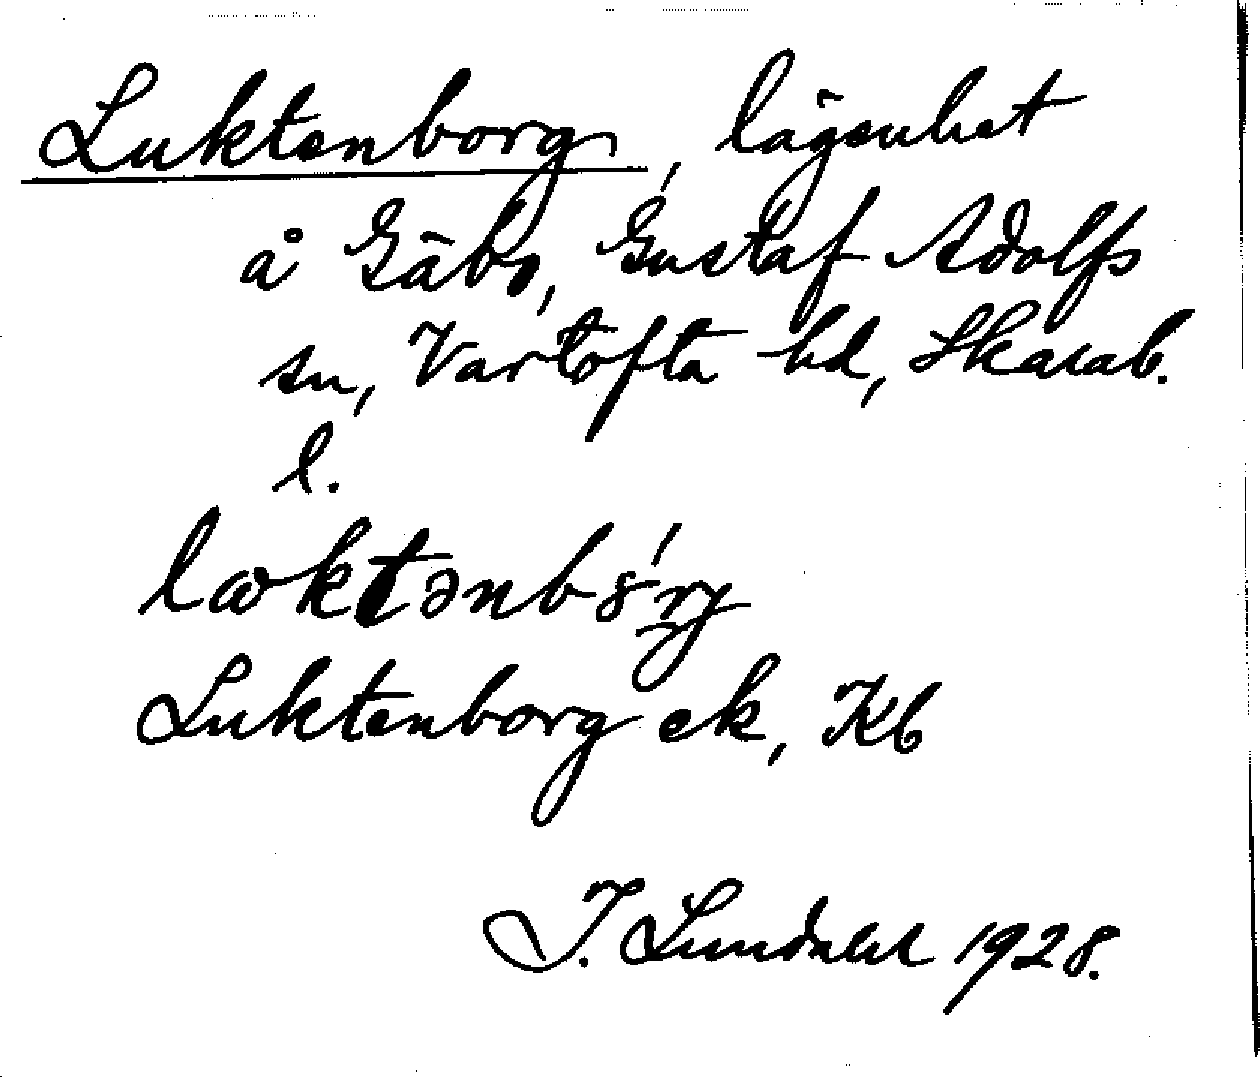 Luktenborg, lägenhet
å Gäbo, Gustaf Adolfs
sn, Vartofta hd, Skarab.
l.
Luktenborg ek, Kb
I. Lundahl 1928.